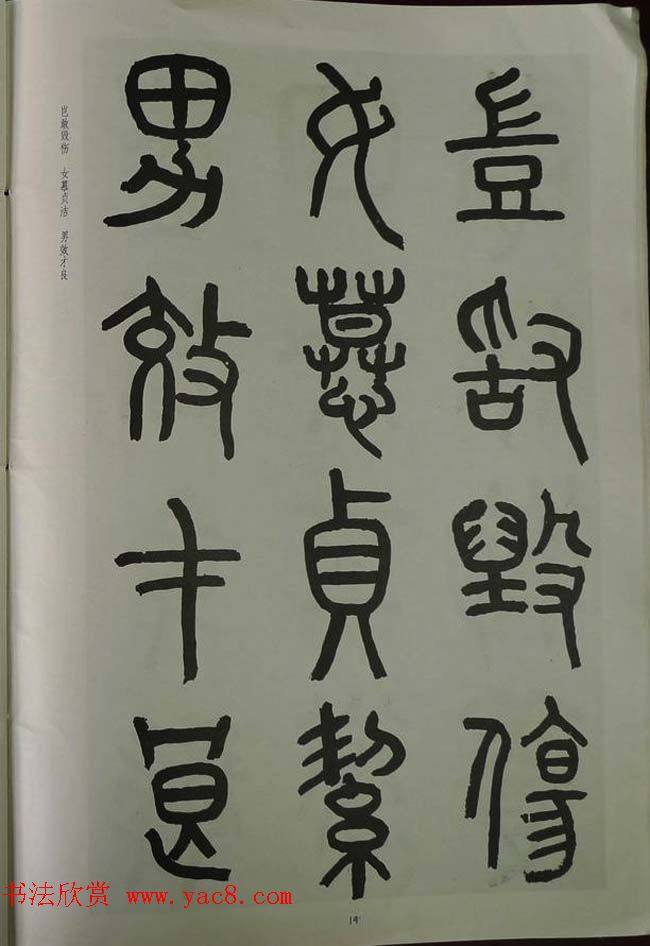 豈敢毀傷
女慕貞絜
男效才良
岂敢毁伤 女慕贞洁 男效才良
书法欣赏 www.yac8.com
19